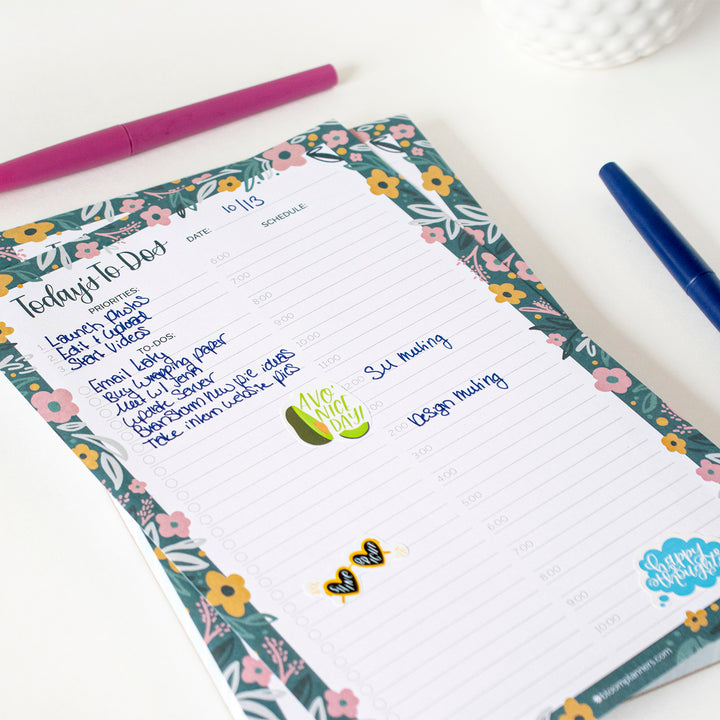 Today's To-Dos
DATE:
10/13
PRIORITIES:
1. Launch photos
2. Edit + upload
3. Start videos
TO-DOS:
Email Katy
Buy wrapping paper
Meet w/
Update server
Brainstorm new pie ideas
Take website pics
SCHEDULE:
6:00
7:00
8:00
9:00
10:00
11:00
12:00 SM meeting
2:00 Design meeting
3:00
4:00
5:00
6:00
7:00
8:00
9:00
10:00
AVO'
NICE
DAY!
happy
bloomplanners.com